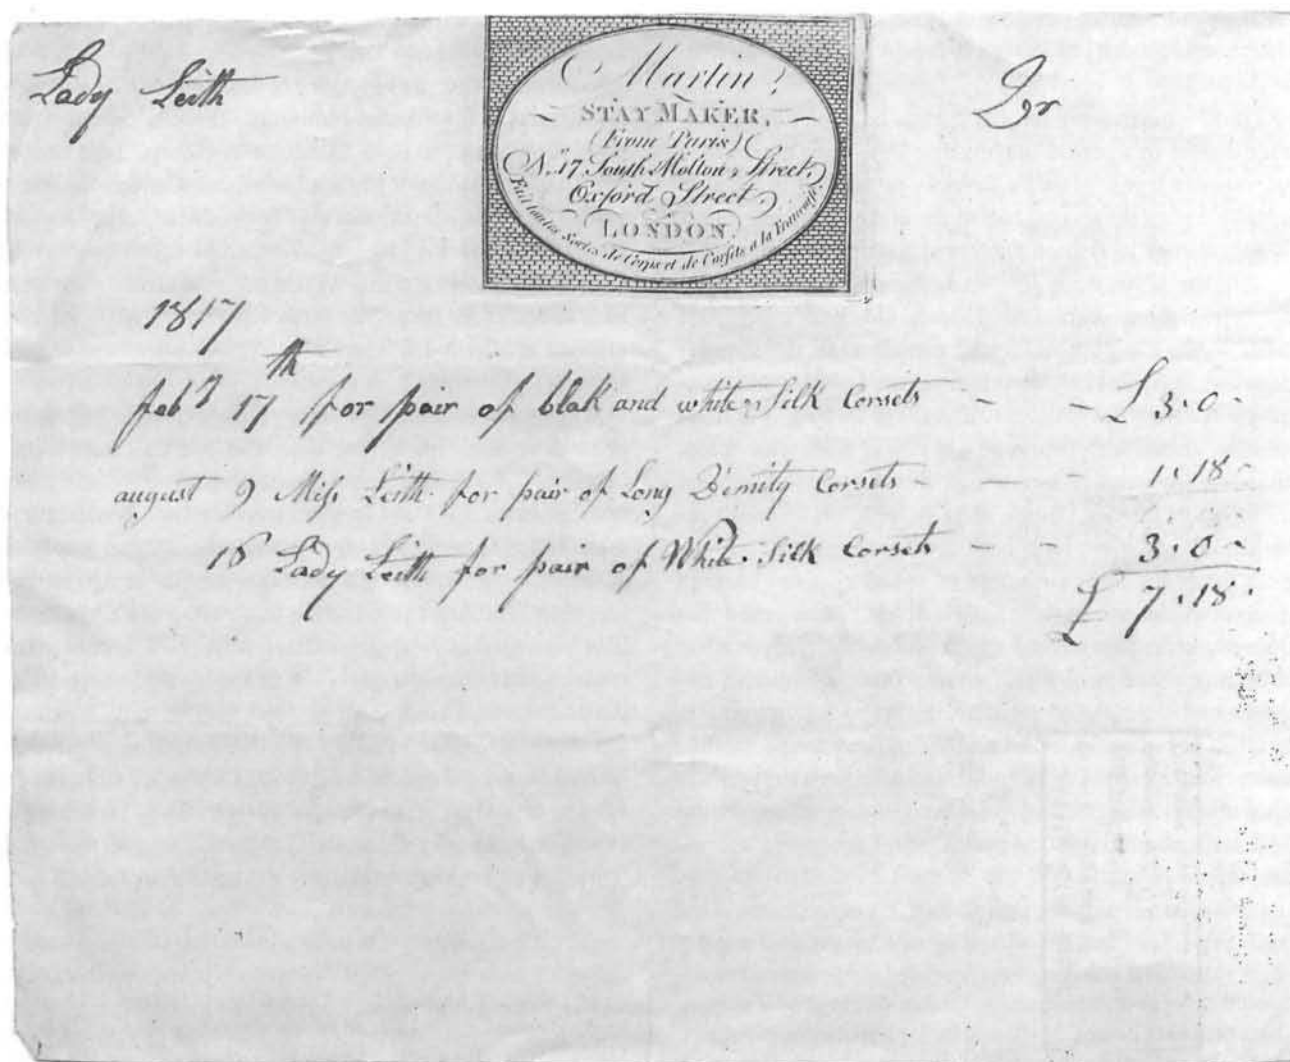 Lady Leith
Martin,
STAY MAKER,
(From Paris)
No. 17 South Molton Street,
Oxford Street,
LONDON.
Fait toutes Sortes de Corps et de Corsets a la Francaise.
Dr
1817
feby 17th for pair of blak and white Silk Corsets - - £ 3.0 -
august 9 Miss Leith for pair of Long Dimity Corsets - - - 1.18 -
16 Lady Leith for pair of White Silk Corsets - - 3.0 -
£ 7.18.